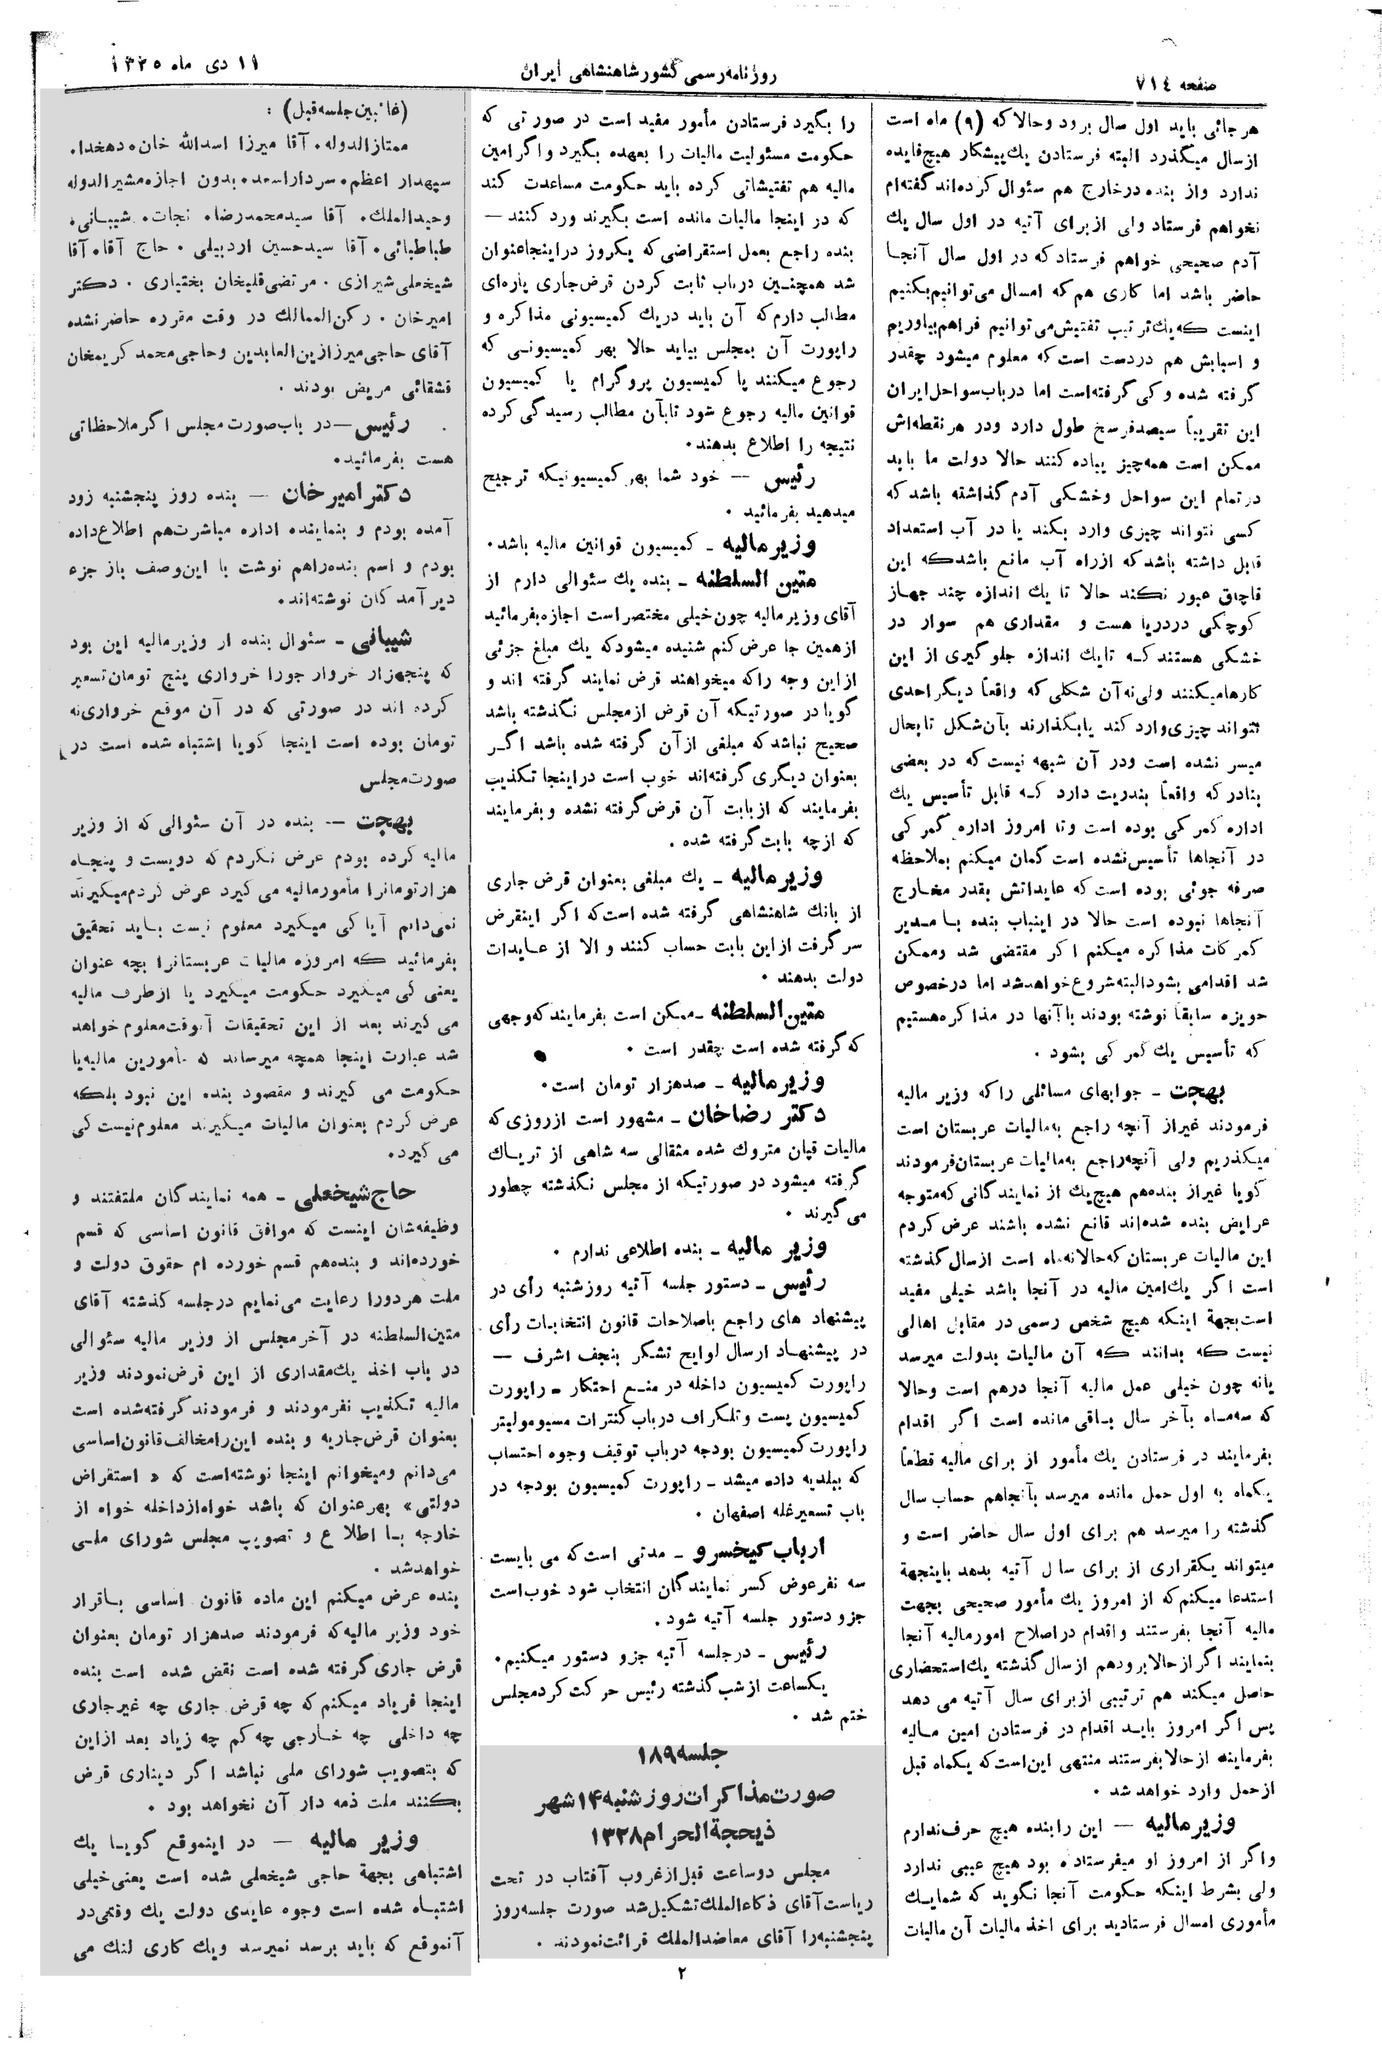 صفحه ۷۱۴
روزنامه رسمی کشور شاهنشاهی ایران
۱۱ دی ماه ۱۳۳۵
هر جائی باید اول سال برود و حالا که (۹) ماه است
از سال میگذرد البته فرستادن یک پیشکار هیچ فایده
ندارد و از بنده در خارج هم سئوال کرده‌اند گفته‌ام
نخواهم فرستاد ولی از برای آتیه در اول سال یک
آدم صحیحی خواهم فرستاد که در اول سال آنجا
حاضر باشد اما کاری هم که امسال می‌توانیم بکنیم
اینست که یک ترتیب تفتیش می‌توانیم فراهم بیاوریم
و اسبابش هم در دست است که معلوم میشود چقدر
گرفته شده و کی گرفته است اما در باب سواحل ایران
این تقریباً سیصد فرسخ طول دارد و در هر نقطه‌اش
ممکن است همه چیز پیاده کنند حالا دولت ما باید
در تمام این سواحل و خشکی آدم گذاشته باشد که
کسی نتواند چیزی وارد بکند یا در آب استعداد
قابل داشته باشد که از راه آب مانع باشد که این
قاچاق عبور نکند حالا تا یک اندازه چند جهاز
کوچکی در دریا هست و مقداری هم سوار در
خشکی هستند که تا یک اندازه جلوگیری از این
کارها میکنند ولی نه آن شکلی که واقعاً دیگر احدی
نتواند چیزی وارد کند یا بگذارند بآن شکل تا بحال
میسر نشده است و در آن شبهه نیست که در بعضی
بنادر که واقعاً بندریت دارد که قابل تأسیس یک
اداره گمرکی بوده است و تا امروز اداره گمرکی
در آنجاها تأسیس نشده است گمان میکنم بملاحظه
صرفه جوئی بوده است که عایداتش بقدر مخارج
آنجاها نبوده است حالا در اینباب بنده با مدیر
گمرکات مذاکره میکنم اگر مقتضی شد و ممکن
شد اقدامی بشود البته شروع خواهد شد اما در خصوص
حویزه سابقاً نوشته بودند با آنها در مذاکره هستیم
که تأسیس یک گمرکی بشود .
بهجت - جوابهای مسائلی را که وزیر مالیه
فرمودند غیر از آنچه راجع به مالیات عربستان است
میگذریم ولی آنچه راجع به مالیات عربستان فرمودند
گویا غیر از بنده هم هیچ یک از نمایندگانی که متوجه
عرایض بنده شده‌اند قانع نشده باشند عرض کردم
این مالیات عربستان که حالا نه ماه است از سال گذشته
است اگر یک امین مالیه در آنجا باشد خیلی مفید
است بجهة اینکه هیچ شخص رسمی در مقابل اهالی
نیست که بدانند که آن مالیات بدولت میرسد
یا نه چون خیلی عمل مالیه آنجا درهم است و حالا
که سه ماه بآخر سال باقی مانده است اگر اقدام
بفرمایند در فرستادن یک مأمور از برای مالیه قطعاً
یکماه به اول حمل مانده میرسد بآنجا هم حساب سال
گذشته را میرسد هم برای اول سال حاضر است و
میتواند یکقراری از برای سال آتیه بدهد باینجهة
استدعا میکنم که از امروز یک مأمور صحیحی بجهت
مالیه آنجا بفرستند و اقدام در اصلاح امور مالیه آنجا
بنمایند اگر از حالا برود هم از سال گذشته یک استحضاری
حاصل میکند هم ترتیبی از برای سال آتیه می دهد
پس اگر امروز باید اقدام در فرستادن امین مالیه
بفرمایند از حالا بفرستند منتهی این است که یکماه قبل
از حمل وارد خواهد شد .
وزیر مالیه — این را بنده هیچ حرف ندارم
و اگر از امروز او میفرستاده بود هیچ عیبی ندارد
ولی بشرط اینکه حکومت آنجا نگوید که شما یک
مأموری امسال فرستادید برای اخذ مالیات آن مالیات
را بگیرد فرستادن مأمور مفید است در صورتی که
حکومت مسئولیت مالیات را بعهده بگیرد و اگر امین
مالیه هم تفتیشاتی کرده باید حکومت مساعدت کند
که در اینجا مالیات مانده است بگیرند ورد کنند —
بنده راجع بعمل استقراضی که یکروز در اینجا عنوان
شد همچنین در باب ثابت کردن قرض جاری پاره‌ای
مطالب دارم که آن باید در یک کمیسیونی مذاکره و
راپورت آن بمجلس بیاید حالا بهر کمیسیونی که
رجوع میکنند یا کمیسیون پروگرام یا کمیسیون
قوانین مالیه رجوع شود تا بآن مطالب رسیدگی کرده
نتیجه را اطلاع بدهند.
رئیس — خود شما بهر کمیسیونیکه ترجیح
میدهید بفرمائید .
وزیر مالیه - کمیسیون قوانین مالیه باشد.
متین السلطنه - بنده یک سئوالی دارم از
آقای وزیر مالیه چون خیلی مختصر است اجازه بفرمائید
از همین جا عرض کنم شنیده میشود که یک مبلغ جزئی
از این وجه را که میخواهند قرض نمایند گرفته اند و
گویا در صورتیکه آن قرض از مجلس نگذشته باشد
صحیح نباشد که مبلغی از آن گرفته شده باشد اگر
بعنوان دیگری گرفته‌اند خوب است در اینجا تکذیب
بفرمایند که از بابت آن قرض گرفته نشده و بفرمایند
که از چه بابت گرفته شده .
وزیر مالیه - یک مبلغی بعنوان قرض جاری
از بانک شاهنشاهی گرفته شده است که اگر اینقرض
سر گرفت از این بابت حساب کنند و الا از عایدات
دولت بدهند .
متین السلطنه - ممکن است بفرمایند که وجهی
که گرفته شده است چقدر است .
وزیر مالیه - صد هزار تومان است.
دکتر رضا خان - مشهور است از روزی که
مالیات قپان متروک شده مثقالی سه شاهی از تریاک
گرفته میشود در صورتیکه از مجلس نگذشته چطور
می گیرند .
وزیر مالیه - بنده اطلاعی ندارم .
رئیس - دستور جلسه آتیه روز شنبه رأی در
پیشنهاد های راجع باصلاحات قانون انتخابات رأی
در پیشنهاد ارسال لوایح تشکر بنجف اشرف —
راپورت کمیسیون داخله در منع احتکار - راپورت
کمیسیون پست و تلگراف در باب کنترات مسیو مولیتر
راپورت کمیسیون بودجه در باب توقیف وجوه احتساب
که ببلدیه داده میشد - راپورت کمیسیون بودجه در
باب تسعیر غله اصفهان .
ارباب کیخسرو - مدتی است که می بایست
سه نفر عوض کسر نمایندگان انتخاب شود خوب است
جزو دستور جلسه آتیه شود.
رئیس - در جلسه آتیه جزو دستور میکنیم.
یکساعت از شب گذشته رئیس حرکت کرد مجلس
ختم شد .
جلسه ۱۸۹
صورت مذاکرات روز شنبه ۱۴ شهر
ذیحجة الحرام ۱۳۲۸
مجلس دو ساعت قبل از غروب آفتاب در تحت
ریاست آقای ذکاءالملک تشکیل شد صورت جلسه روز
پنجشنبه را آقای معاضدالملک قرائت نمودند .
(غائبین جلسه قبل) :
ممتازالدوله. آقا میرزا اسدالله خان. دهخدا.
سپهدار اعظم. سردار اسعد. بدون اجازه مشیرالدوله
وحیدالملک. آقا سید محمد رضا. نجات. شیبانی.
طباطبائی. آقا سید حسین اردبیلی . حاج آقا. آقا
شیخعلی شیرازی . مرتضی قلیخان بختیاری . دکتر
امیر خان . رکن الممالک در وقت مقرره حاضر نشده
آقای حاجی میرزا زین العابدین و حاجی محمد کریمخان
قشقائی مریض بودند .
رئیس — در باب صورت مجلس اگر ملاحظاتی
هست بفرمائید.
دکتر امیر خان — بنده روز پنجشنبه زود
آمده بودم و بنماینده اداره مباشرت هم اطلاع داده
بودم و اسم بنده را هم نوشت با این وصف باز جزء
دیر آمدگان نوشته‌اند.
شیبانی - سئوال بنده از وزیر مالیه این بود
که پنجهزار خروار جو را خرواری پنج تومان تسعیر
کرده اند در صورتی که در آن موقع خرواری نه
تومان بوده است اینجا گویا اشتباه شده است در
صورت مجلس
بهجت — بنده در آن سئوالی که از وزیر
مالیه کرده بودم عرض نکردم که دویست و پنجاه
هزار تومانرا مأمور مالیه می گیرد عرض کردم میگیرند
نمی‌دانم آیا کی میگیرد معلوم نیست باید تحقیق
بفرمائید که امروزه مالیات عربستانرا بچه عنوان
یعنی کی میگیرد حکومت میگیرد یا از طرف مالیه
می گیرند بعد از این تحقیقات آنوقت معلوم خواهد
شد عبارت اینجا همچه میرساند که مأمورین مالیه یا
حکومت می گیرند و مقصود بنده این نبود بلکه
عرض کردم بعنوان مالیات میگیرند معلوم نیست کی
می گیرد.
حاج شیخعلی - همه نمایندگان ملتفتند و
وظیفه‌شان اینست که موافق قانون اساسی که قسم
خورده‌اند و بنده هم قسم خورده ام حقوق دولت و
ملت هر دو را رعایت می‌نمایم در جلسه گذشته آقای
متین السلطنه در آخر مجلس از وزیر مالیه سئوالی
در باب اخذ یک مقداری از این قرض نمودند وزیر
مالیه تکذیب نفرمودند و فرمودند گرفته شده است
بعنوان قرض جاریه و بنده این را مخالف قانون اساسی
می‌دانم و میخوانم اینجا نوشته است که « استقراض
دولتی» بهر عنوان که باشد خواه از داخله خواه از
خارجه با اطلاع و تصویب مجلس شورای ملی
خواهد شد .
بنده عرض میکنم این ماده قانون اساسی باقرار
خود وزیر مالیه که فرمودند صد هزار تومان بعنوان
قرض جاری گرفته شده است نقض شده است بنده
اینجا فریاد میکنم که چه قرض جاری چه غیر جاری
چه داخلی چه خارجی چه کم چه زیاد بعد از این
که بتصویب شورای ملی نباشد اگر دیناری قرض
بکنند ملت ذمه دار آن نخواهد بود .
وزیر مالیه — در اینموقع گویا یک
اشتباهی بجهة حاجی شیخعلی شده است یعنی خیلی
اشتباه شده است وجوه عایدی دولت یک وقتی در
آنموقع که باید برسد نمیرسد و یک کاری لنگ می
۲